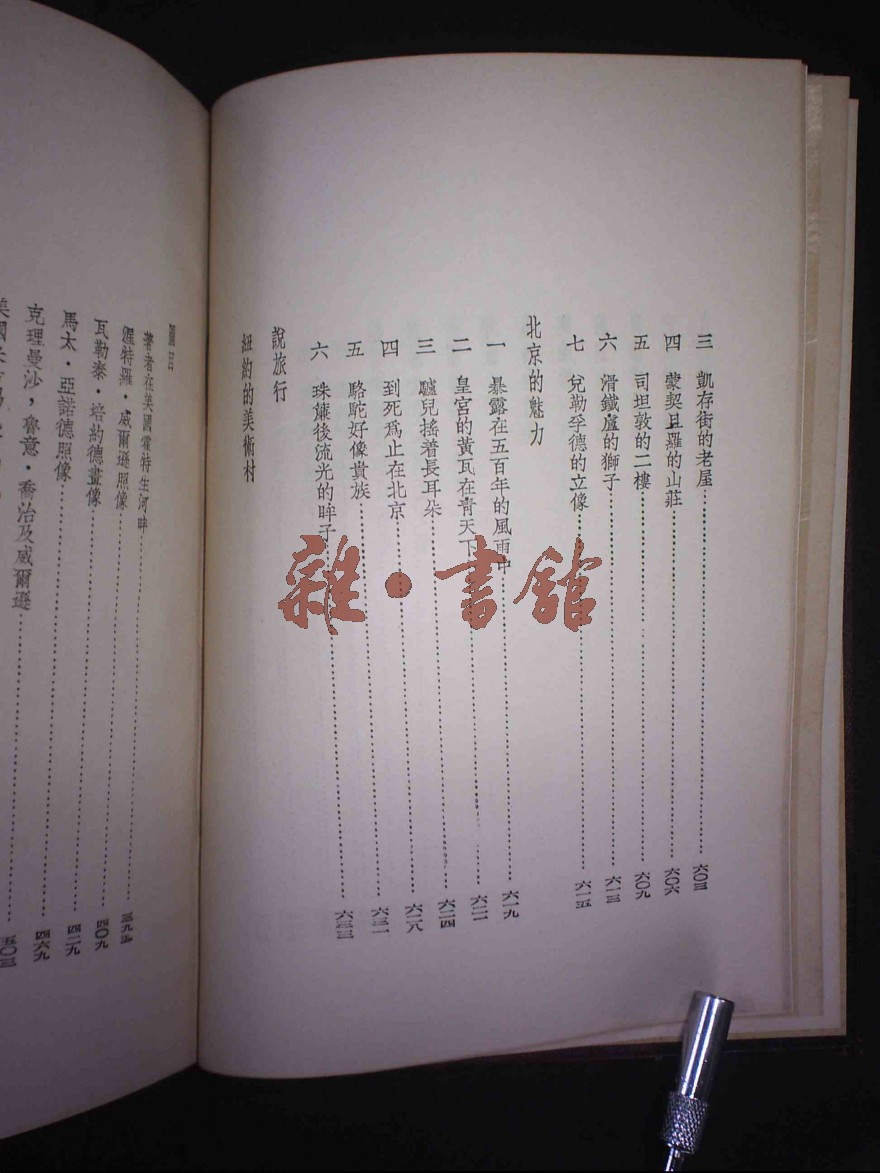 三 凱存街的老屋……六〇三
四 蒙契且羅的山莊……六〇六
五 司坦敦的二樓……六〇九
六 滑鐵廬的獅子……六一三
七 兌勒孚德的立像……六一五
北京的魅力
一 暴露在五百年的風雨中……六一九
二 皇宮的黃瓦在青天下……六二二
三 驢兒搖着長耳朵……六二四
四 到死爲止在北京……六二八
五 駱駝好像貴族……六三一
六 珠簾後流光的眸子……六三三
說旅行
紐約的美術村
圖目
著者在美國霍特生河畔……
渥特羅·威爾遜照像……三九五
瓦勒泰·培約德畫像……四〇九
馬太·亞諾德照像……四二九
克理曼沙，魯意·喬治及威爾遜……四六九
美國……五〇三
雜·書館